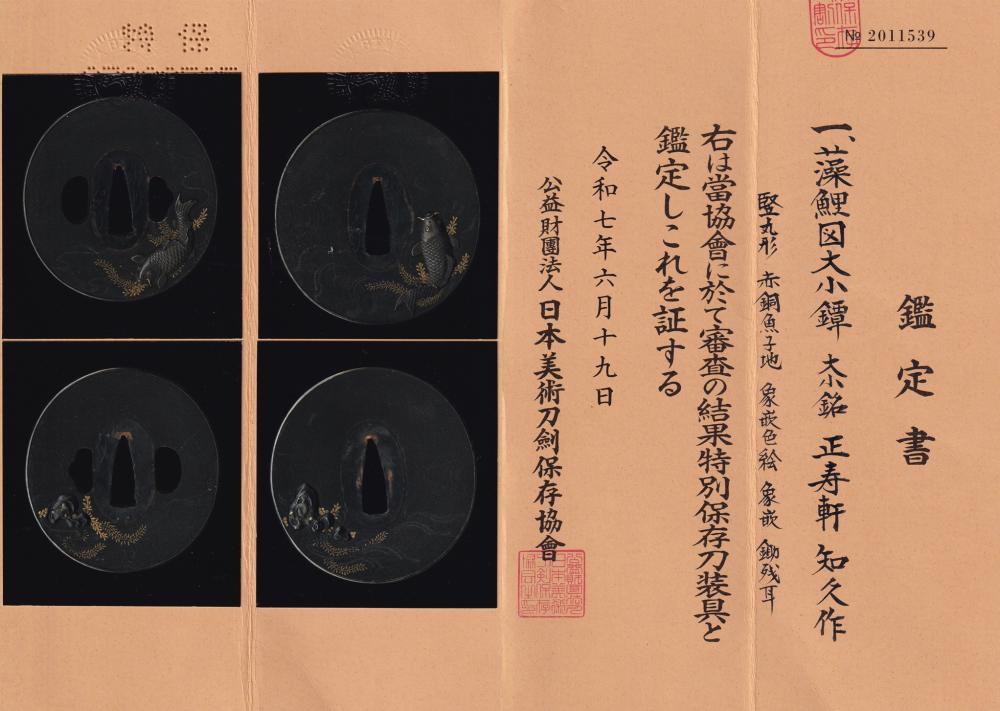 № 2011539
鑑定書
一、藻鯉図大小鐔 大小銘 正寿軒 知久作
竪丸形 赤銅魚子地 象嵌色絵 象嵌 鋤残耳
右は當協會に於て審査の結果特別保存刀装具と
鑑定しこれを証する
令和七年六月十九日
公益財團法人 日本美術刀劍保存協會